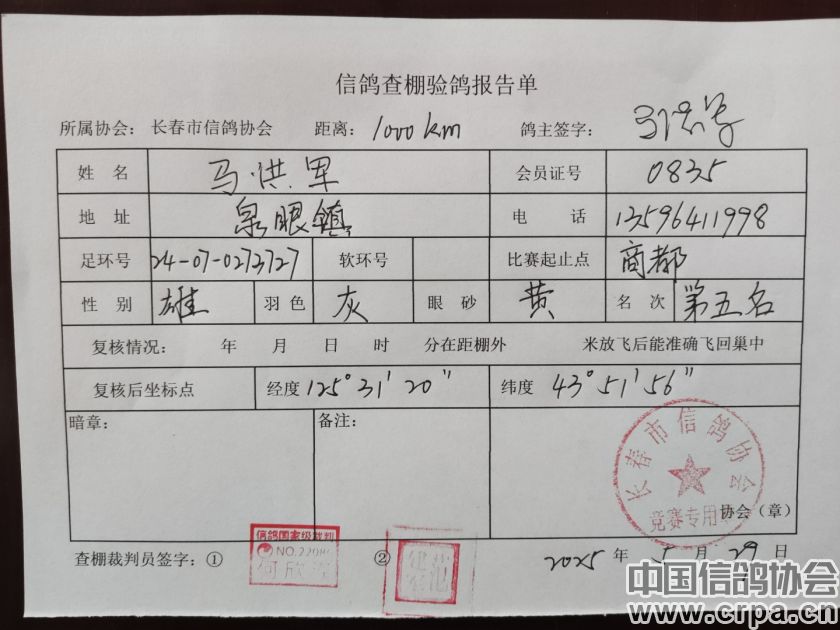 信鸽查棚验鸽报告单
所属协会： 长春市信鸽协会 距离： 1000 km 鸽主签字：
姓 名 马洪军 会员证号 0835
地 址 泉眼镇 电 话 13596411998
足环号 24-07-0273727 软环号 比赛起止点 商都
性 别 雄 羽色 灰 眼 砂 黄 名 次 第五名
复核情况： 年 月 日 时 分在距棚外 米放飞后能准确飞回巢中
复核后坐标点 经度 125° 31′ 20″ 纬度 43° 51′ 56″
暗章： 备注：
长春市信鸽协会
竞赛专用
协会（章）
查棚裁判员签字：① ②
信鸽国家级裁判
2025 年 5 月 29 日
中国信鸽协会
www.crpa.cn